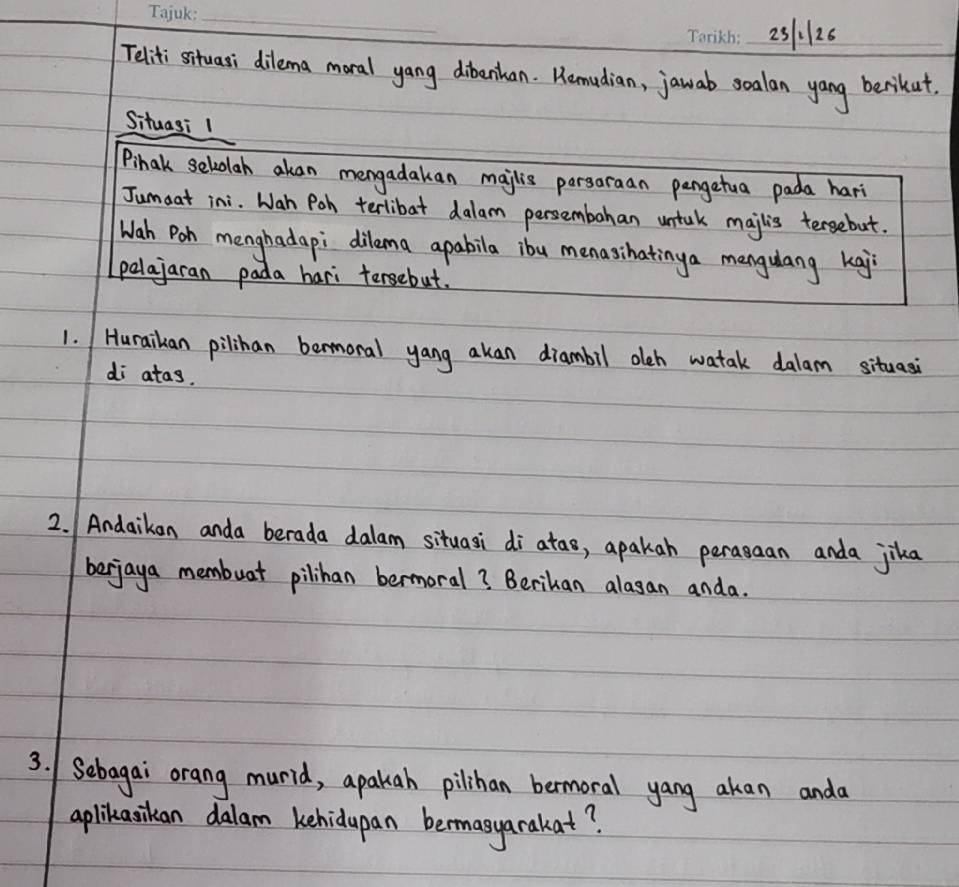 Tajuk:
Tarikh: 23/1/26
Teliti situasi dilema moral yang diberikan. Kemudian, jawab soalan yang berikut.
Situasi 1
Pihak sekolah akan mengadakan majlis persaraan pengetua pada hari
Jumaat ini. Wah Poh terlibat dalam persembahan untuk majlis tersebut.
Wah Poh menghadapi dilema apabila ibu menasihatinya mengulang kaji
pelajaran pada hari tersebut.
1. Huraikan pilihan bermoral yang akan diambil oleh watak dalam situasi
di atas.
2. Andaikan anda berada dalam situasi di atas, apakah perasaan anda jika
berjaya membuat pilihan bermoral? Berikan alasan anda.
3. Sebagai orang murid, apakah pilihan bermoral yang akan anda
aplikasikan dalam kehidupan bermasyarakat?